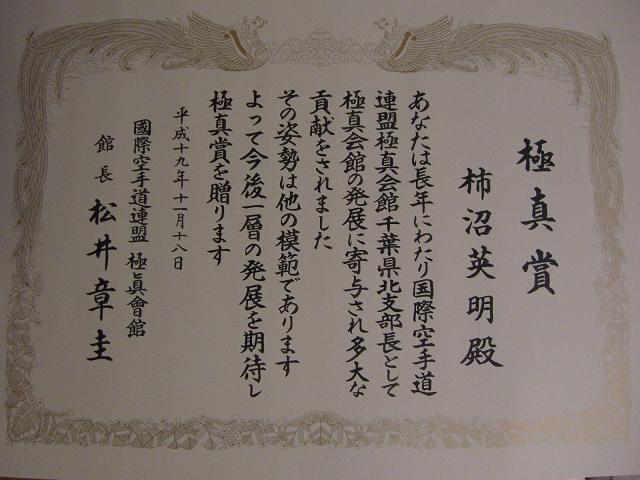 極真賞
柿沼英明殿
あなたは長年にわたり国際空手道
連盟極真会館千葉県北支部長として
極真会館の発展に寄与され多大な
貢献をされました
その姿勢は他の模範であります
よって今後一層の発展を期待し
極真賞を贈ります
平成十九年十一月十八日
國際空手道連盟 極眞會館
館長 松井章圭